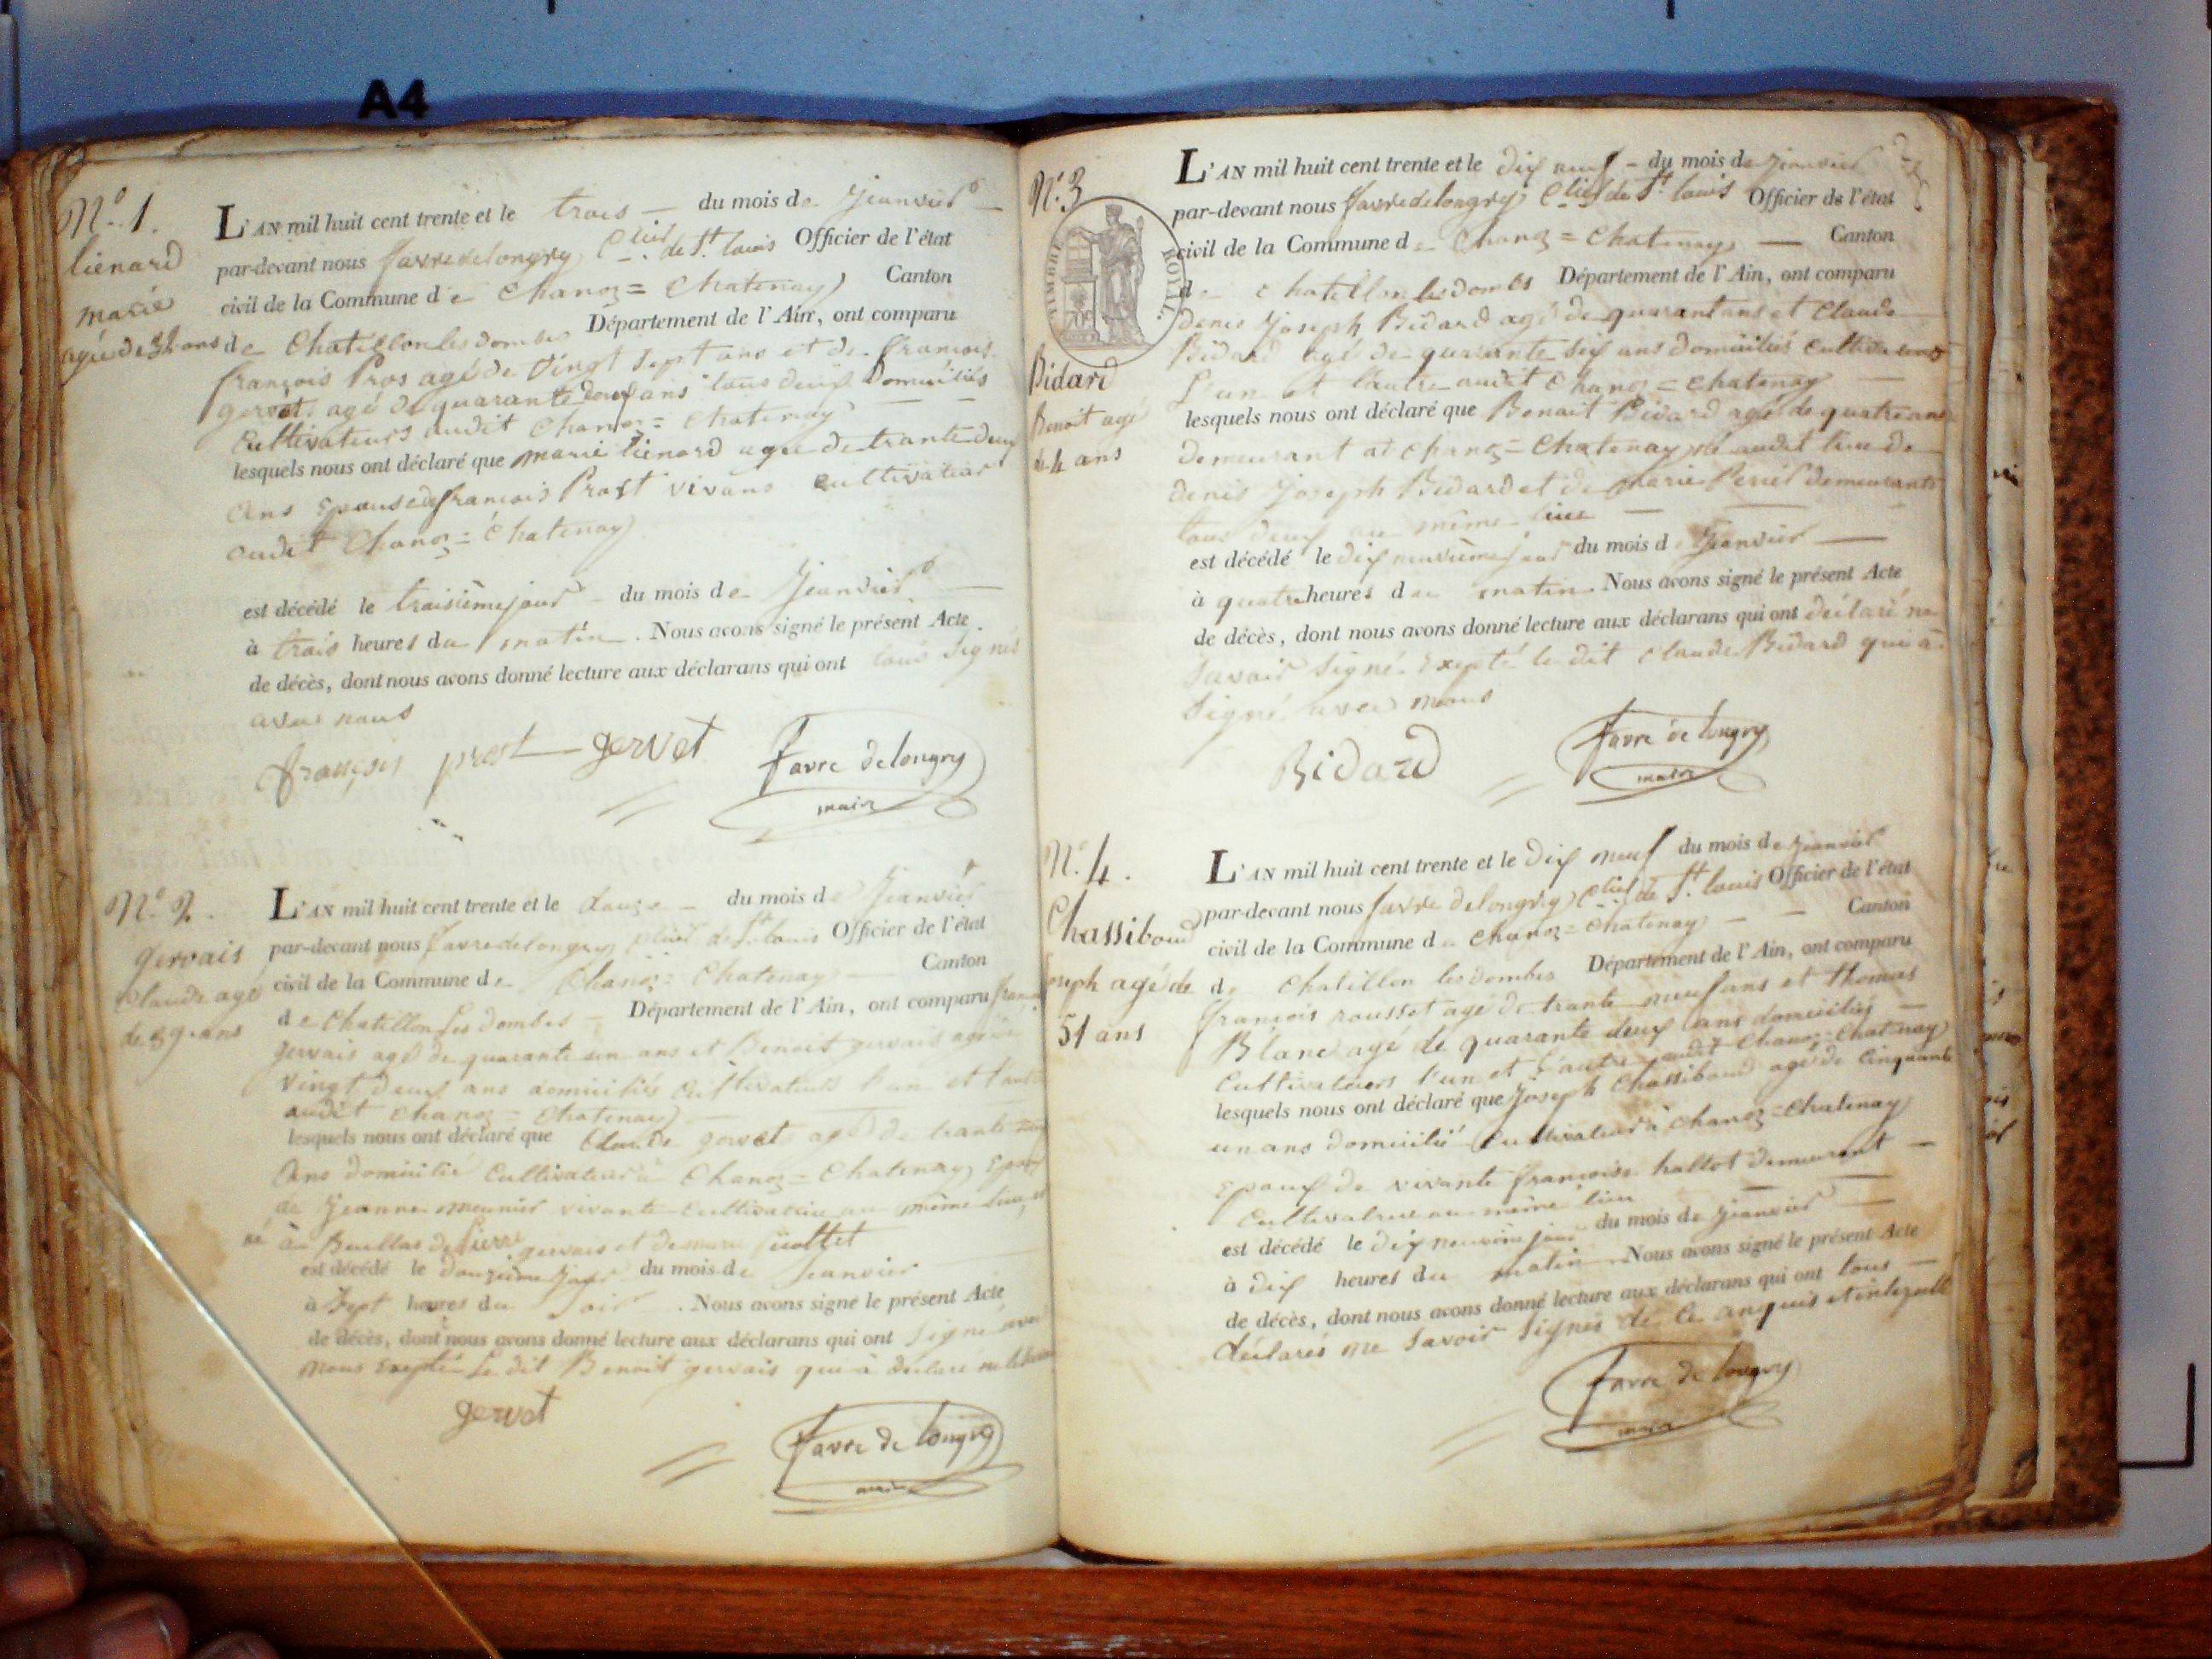 A4
N.º 1.
liénard
marie
agée de 32 ans
L'AN mil huit cent trente et le trois — du mois de Jeanvier —
par-devant nous favredelongry Clier de St. louis Officier de l'état
civil de la Commune de Chanoz = Chatenay Canton
de Chatillonlesdombes Département de l'Ain, ont comparu
françois Pros agé de Vingt sept ans et de françois
gervet agé de quarante deux ans tous deux Domiciliés
Cultivateurs audit Chanoz = Chatenay — —
lesquels nous ont déclaré que marie liénard agée de trante deux
Ans Epouse de françois Prost vivans cultivateur
audit Chanoz = Chatenay
est décédé le troisième jour du mois de Jeanvier —
à trois heures du matin. Nous avons signé le présent Acte
de décès, dont nous avons donné lecture aux déclarans qui ont tous signés
avec nous
françois prost gervet favre de longry
maire
N.º 2.
gervais
Claude agé
de 39 ans
L'AN mil huit cent trente et le douze — du mois de Jeanvier
par-devant nous favredelongry Clier de St. louis Officier de l'état
civil de la Commune de Chanoz = Chatenay — Canton
de Chatillon les Dombes — Département de l'Ain, ont comparu
gervais agé de quarante un ans et Benoit gervais agé de
vingt deux ans domiciliés cultivateurs l'un et l'autre
audit Chanoz = Chatenay
lesquels nous ont déclaré que Claude gervet agé de trante
Ans domicilié Cultivateur à Chanoz = Chatenay Epoux
de Jeanne meunier vivante cultivatrice au même lieu, et
né à Buellas de Pierre gervais et de
est décédé le douzième jour du mois de Jeanvier
à sept heures du soir. Nous avons signé le présent Acte
de décès, dont nous avons donné lecture aux déclarans qui ont signé avec
nous Exepté le dit Benoit gervais qui à déclaré ne le savoir
gervet favre de longry
maire
N.º 3
TIMBRE ROYAL.
Bidard
Benoit agé
de 4 ans
L'AN mil huit cent trente et le dix neuf — du mois de Jeanvier
par-devant nous favredelongry Clier de St. louis Officier de l'état
civil de la Commune de Chanoz = Chatenay — Canton
de Chatillon les dombes Département de l'Ain, ont comparu
denis Joseph Bidard agé de quarant ans et Claude
Bidard agé de quarante six ans domiciliés cultivateurs
l'un et l'autre audit Chanoz = Chatenay —
lesquels nous ont déclaré que Benoit Bidard agé de quatre ans
demeurant à Chanoz = Chatenay né audit lieu de
denis Joseph Bidard et de marie Perier demeurants
tous deux au même lieu — —
est décédé le dix neuvième jour du mois de Jeanvier —
à quatre heures du matin. Nous avons signé le présent Acte
de décès, dont nous avons donné lecture aux déclarans qui ont déclaré ne
savoir signé. Exepté le dit Claude Bidard qui à
signé avec nous
Bidard favre de longry
maire
N.º 4.
Chassiboud
Joseph agé de
51 ans
L'AN mil huit cent trente et le dix neuf du mois de Jeanvier
par-devant nous favre delongry Clier de St. louis Officier de l'état
civil de la Commune de Chanoz = Chatenay — — Canton
de Chatillon les dombes Département de l'Ain, ont comparu
françois rousset agé de trante neuf ans et thomas
Blanc agé de quarante deux ans domiciliés —
Cultivateurs l'un et l'autre audit Chanoz = Chatenay
lesquels nous ont déclaré que Joseph Chassiboud agé de cinquante
un ans domicilié Cultivateur à Chanoz = Chatenay
Epoux de vivante françoise hallot demeurant —
Cultivatrice au même lieu —
est décédé le dix neuvième jour du mois de Jeanvier —
à dix heures du matin. Nous avons signé le présent Acte
de décès, dont nous avons donné lecture aux déclarans qui ont tous —
déclarés ne savoir signés de ce anquis et interpellé
favre de longry
maire